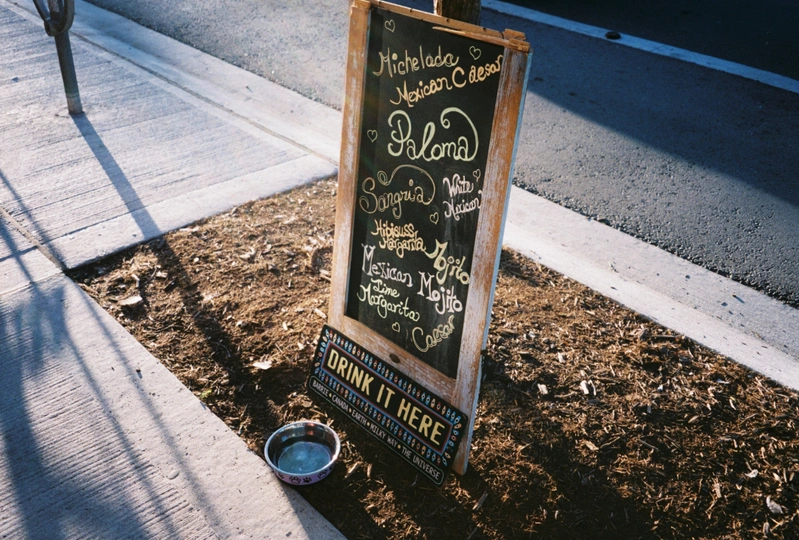 Michelada
Mexican Caesar
Paloma
Sangria
White
Mexican
Hibiscuss
Margarita
Mojito
Mexican Mojito
Lime
Margarita
Caesar
DRINK IT HERE
BARRIE • CANADA • EARTH • MILKY WAY • THE UNIVERSE